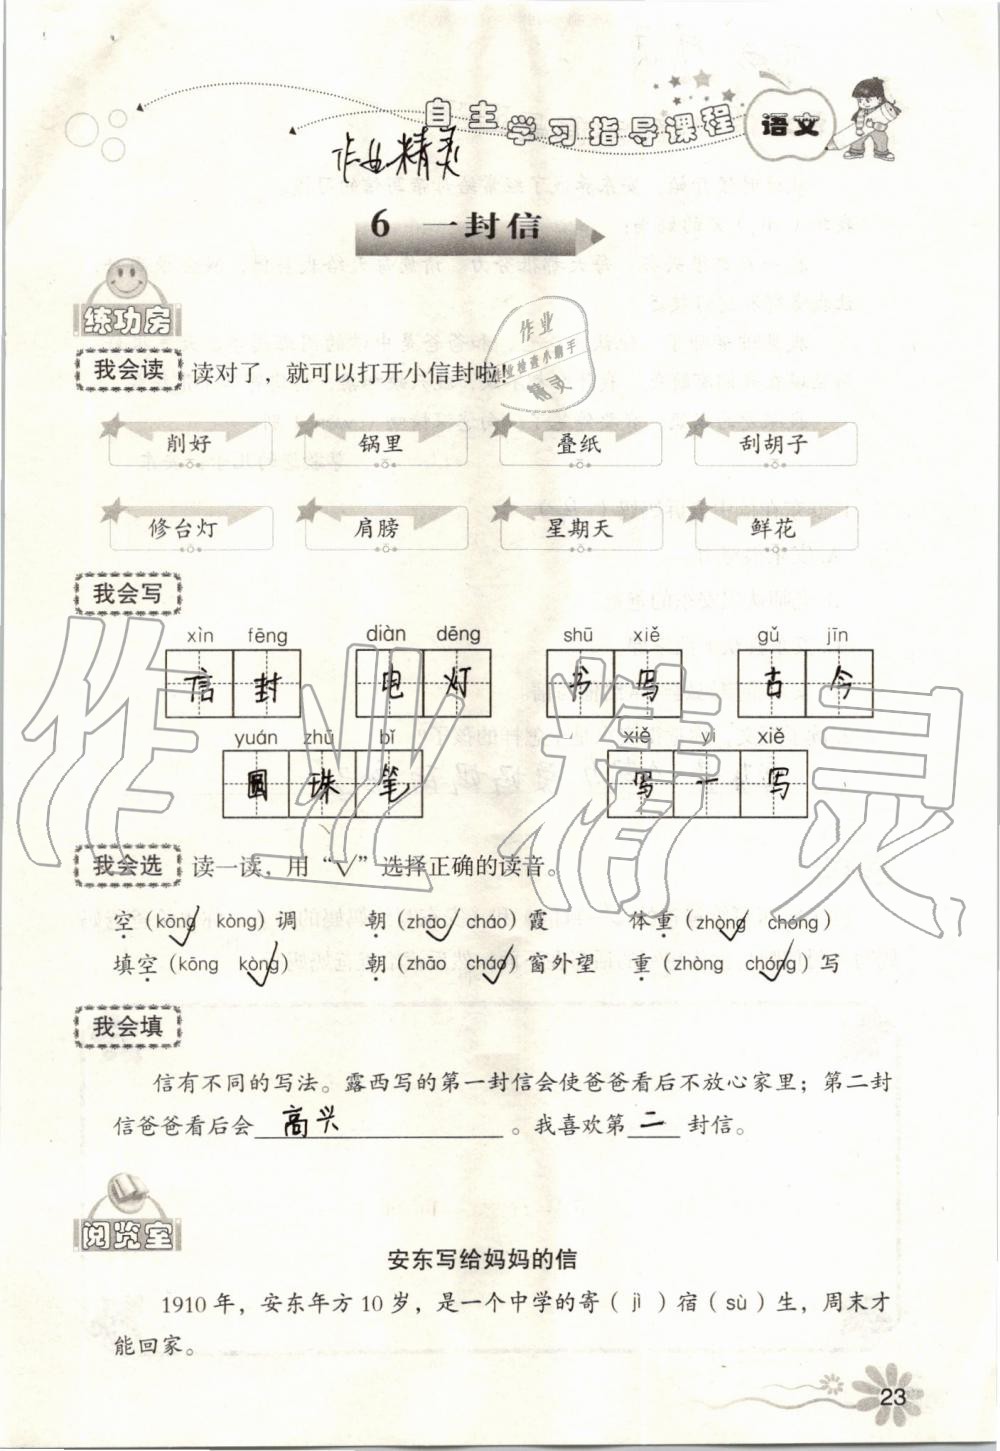 自主学习指导课程 语文
作业精灵
6 一封信
练功房
作业
作业检查小助手
精灵
我会读 读对了，就可以打开小信封啦！
削好 锅里 叠纸 刮胡子
修台灯 肩膀 星期天 鲜花
我会写
xìn fēng diàn dēng shū xiě gǔ jīn
信封 电灯 书写 古今
yuán zhū bǐ xiě yi xiě
圆珠笔 写一写
我会选 读一读，用“√”选择正确的读音。
空（kōng√ kòng）调 朝（zhāo√ cháo）霞 体重（zhòng√ chóng）
填空（kōng kòng√） 朝（zhāo cháo√）窗外望 重（zhòng chóng√）写
我会填
信有不同的写法。露西写的第一封信会使爸爸看后不放心家里；第二封
信爸爸看后会 高兴 。我喜欢第 二 封信。
阅览室
安东写给妈妈的信
1910 年，安东年方 10 岁，是一个中学的寄（jì）宿（sù）生，周末才
能回家。
23
作业精灵